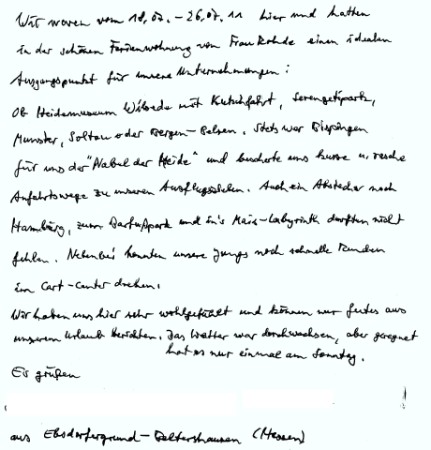 Wir waren vom 18.07. – 26.07.11 hier und hatten
in der schönen Ferienwohnung von Frau Rohde einen idealen
Ausgangspunkt für unsere Unternehmungen:
Ob Heidemuseum Wilsede mit Kutschfahrt, Serengetipark,
Munster, Soltau oder Bergen-Belsen. Stets war Bispingen
für uns der "Nabel der Heide" und bescherte uns kurze u. rasche
Anfahrtswege zu unseren Ausflugszielen. Auch ein Abstecher nach
Hamburg, zum Barfußpark und in's Mais-Labyrinth durften nicht
fehlen. Nebenbei konnten unsere Jungs noch schnelle Runden
im Cart-Center drehen.
Wir haben uns hier sehr wohlgefühlt und können nur Gutes aus
unserem Urlaub berichten. Das Wetter war durchwachsen, aber geregnet
hat es nur einmal am Sonntag.
Es grüßen
aus Ebsdorfergrund-Beltershausen (Hessen)